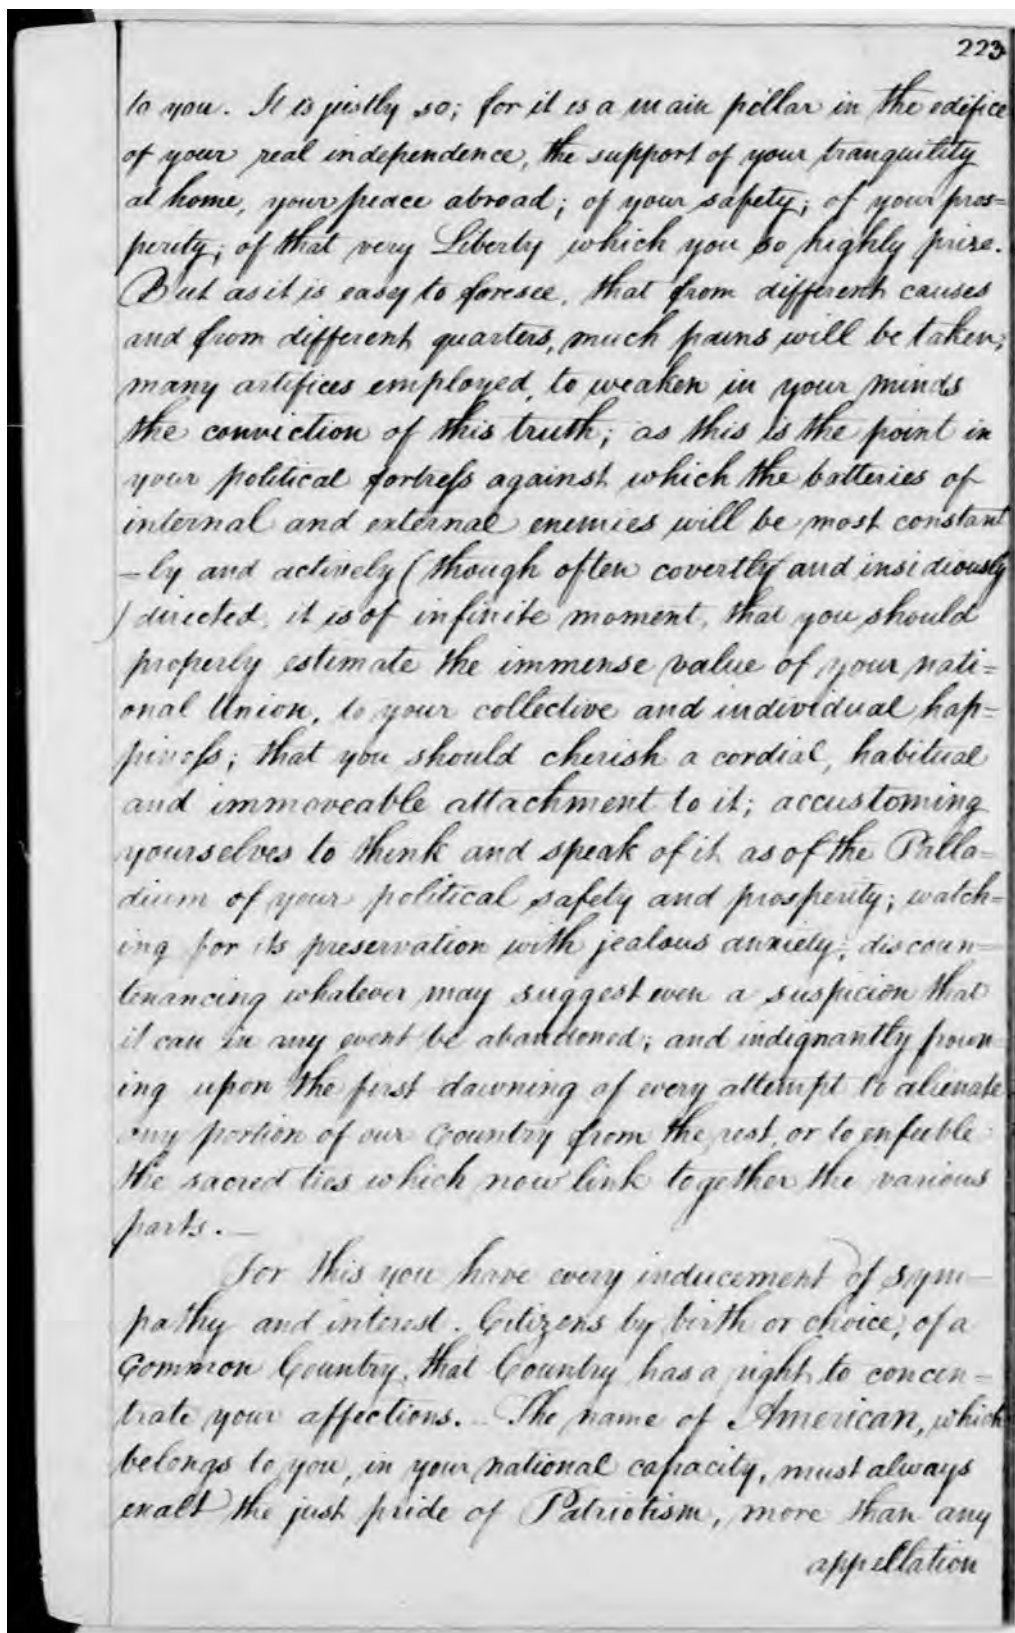 223
to you. It is justly so; for it is a main pillar in the edifice
of your real independence, the support of your tranquility
at home, your peace abroad; of your safety; of your pros=
perity; of that very Liberty which you so highly prize.
But as it is easy to foresee, that from different causes
and from different quarters, much pains will be taken,
many artifices employed, to weaken in your minds
the conviction of this truth; as this is the point in
your political fortress against which the batteries of
internal and external enemies will be most constant
-ly and actively (though often covertly and insidiously
) directed, it is of infinite moment, that you should
properly estimate the immense value of your nati=
onal Union, to your collective and individual hap=
piness; that you should cherish a cordial, habitual
and immoveable attachment to it; accustoming
yourselves to think and speak of it as of the Palla=
dium of your political safety and prosperity; watch=
ing for its preservation with jealous anxiety; discoun=
tenancing whatever may suggest even a suspicion that
it can in any event be abandoned; and indignantly frown
ing upon the first dawning of every attempt to alienate
any portion of our Country from the rest, or to enfeeble
the sacred ties which now link together the various
parts.—
For this you have every inducement of sym—
pathy and interest. Citizens by birth or choice, of a
Common Country, that Country has a right to concen=
trate your affections. The name of American, which
belongs to you, in your national capacity, must always
exalt the just pride of Patriotism, more than any
appellation